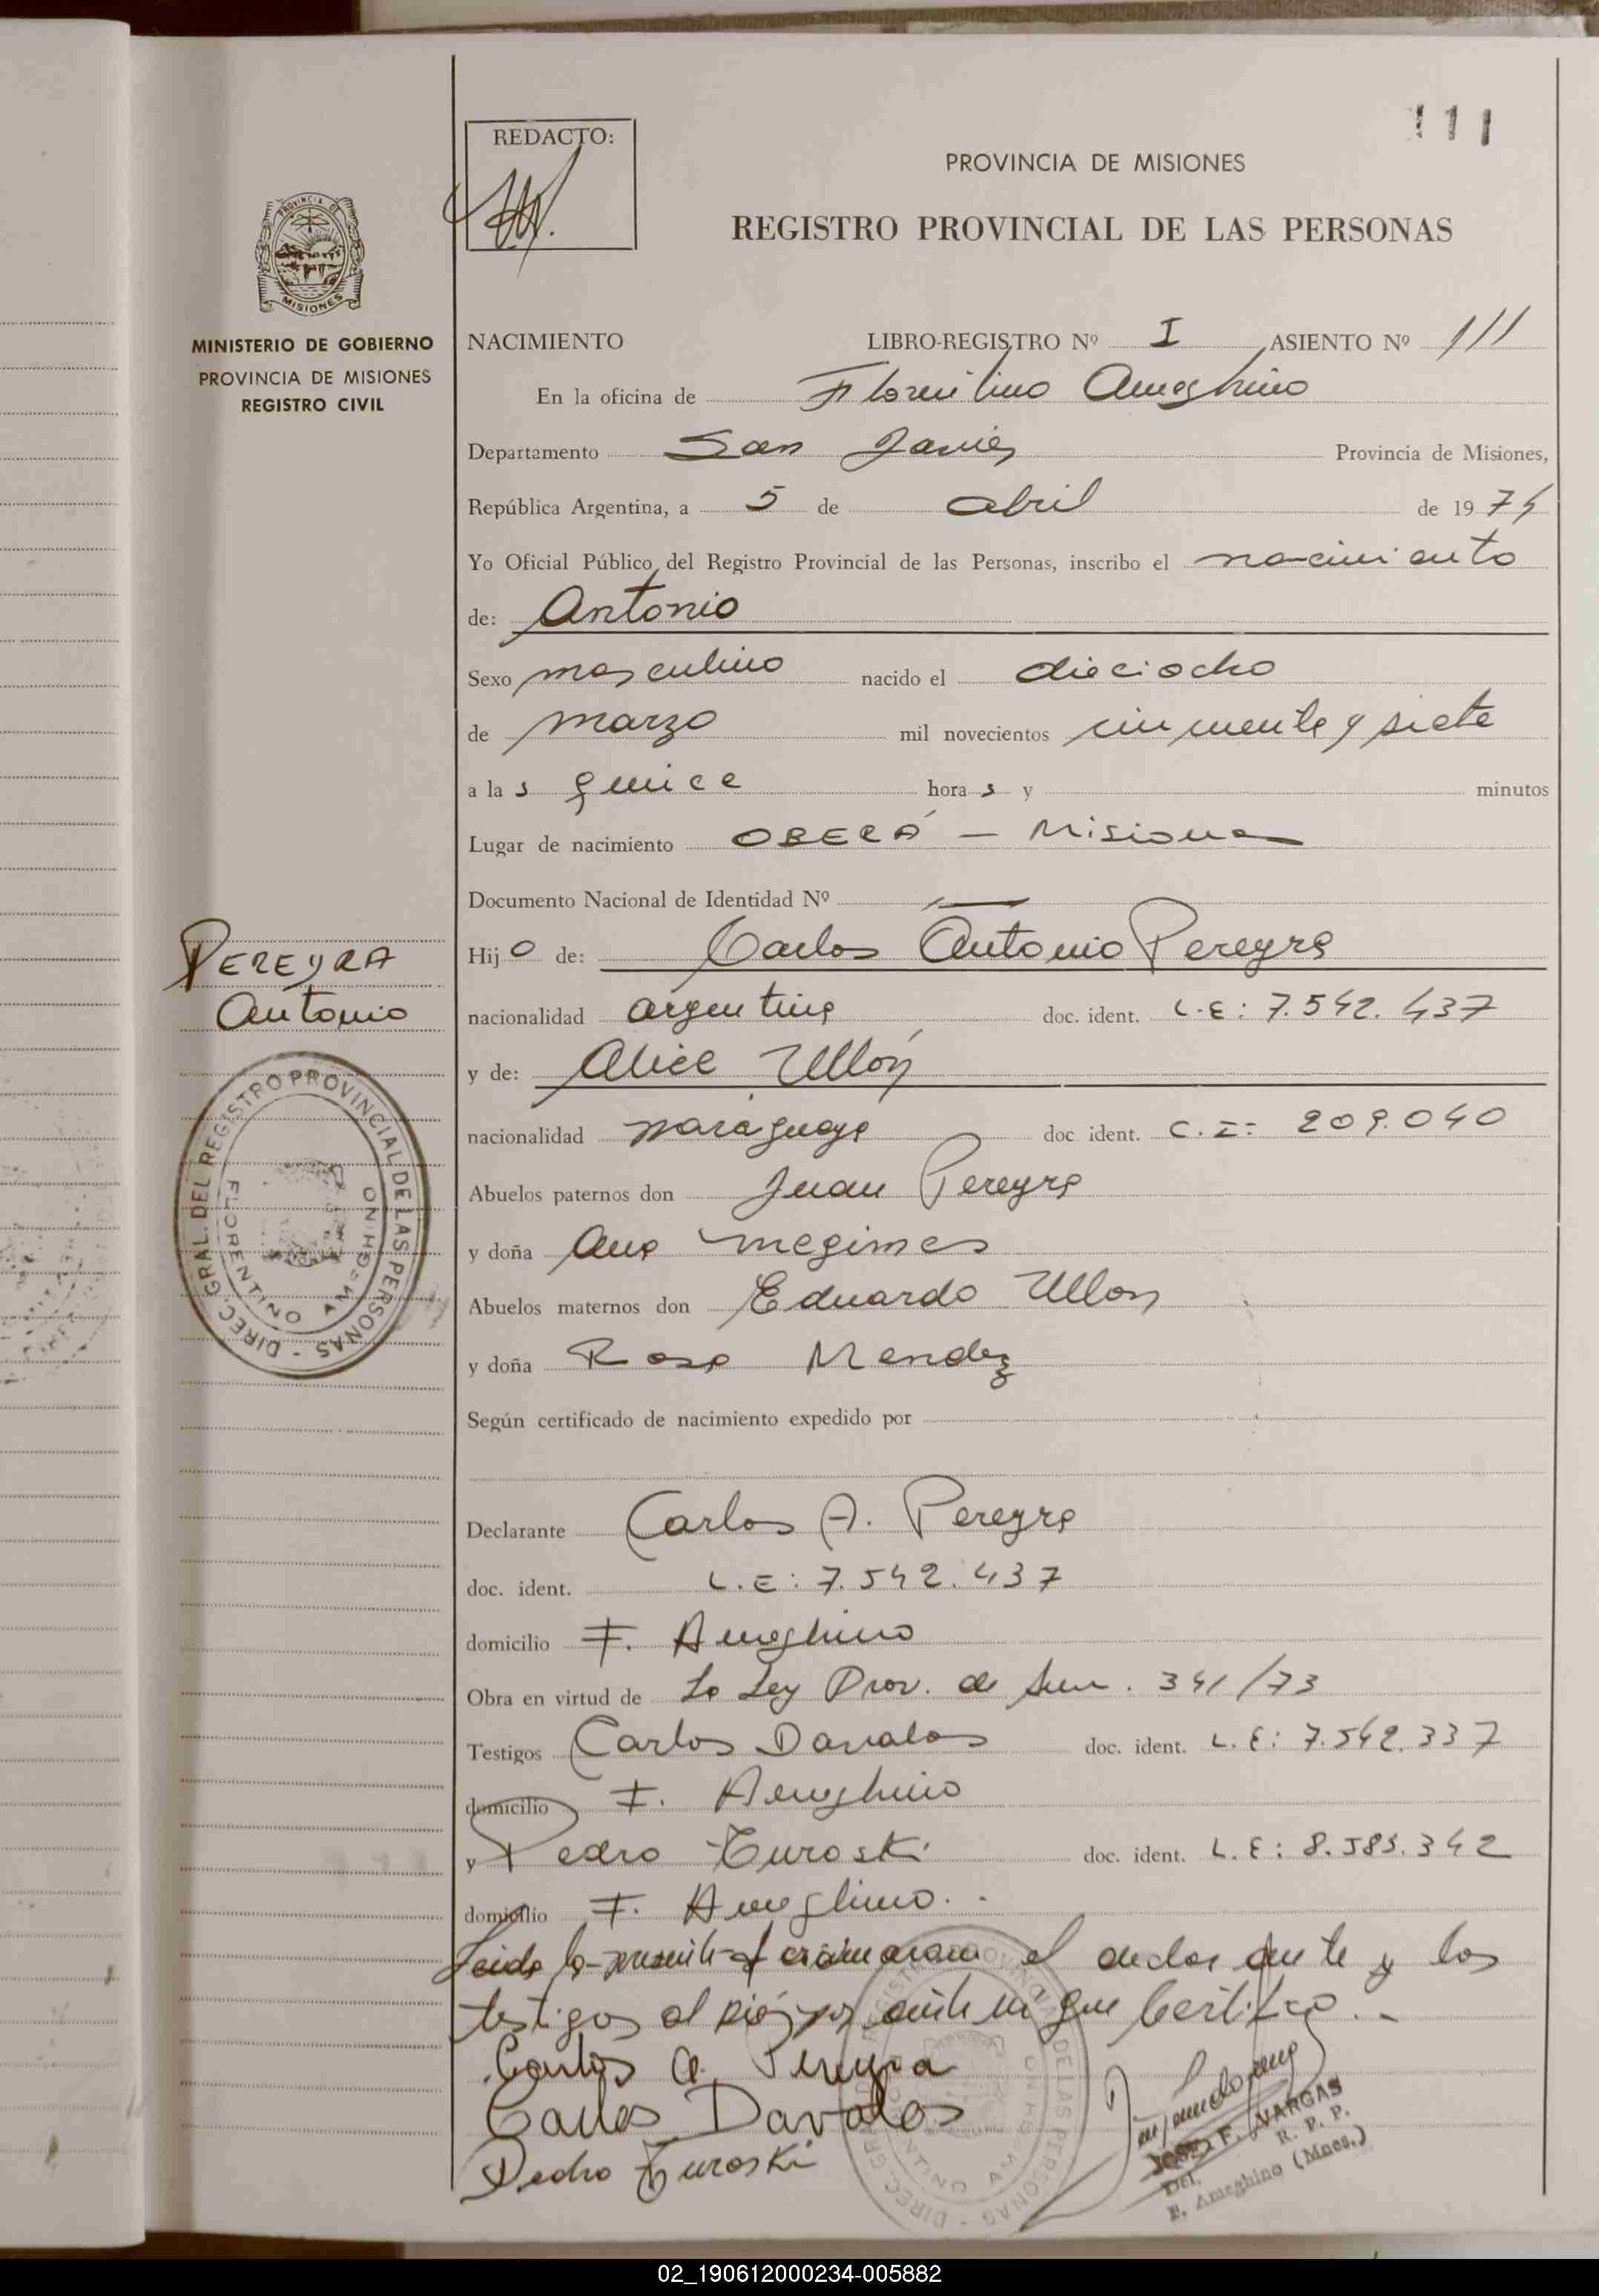 111
REDACTO:
PROVINCIA DE MISIONES
REGISTRO PROVINCIAL DE LAS PERSONAS
PROVINCIA DE
MISIONES
MINISTERIO DE GOBIERNO
PROVINCIA DE MISIONES
REGISTRO CIVIL
NACIMIENTO LIBRO-REGISTRO Nº I ASIENTO Nº 111
En la oficina de Florentino Ameghino
Departamento San Javier Provincia de Misiones,
República Argentina, a 5 de abril de 1974
Yo Oficial Público del Registro Provincial de las Personas, inscribo el nacimiento
de: Antonio
Sexo masculino nacido el dieciocho
de marzo mil novecientos cincuenta y siete
a las quince horas y minutos
Lugar de nacimiento OBERÁ - Misiones
Documento Nacional de Identidad Nº —
PEREYRA
Antonio
Hijo de: Carlos Antonio Pereyra
nacionalidad argentina doc. ident. L.E: 7.542.437
y de: Alice Ullón
nacionalidad paraguaya doc ident. C.I: 209.040
Abuelos paternos don Juan Pereyra
y doña Ana Megimes
Abuelos maternos don Eduardo Ullon
y doña Rosa Mendez
DIREC. GRAL. DEL REGISTRO PROVINCIAL DE LAS PERSONAS -
FLORENTINO AMEGHINO
Según certificado de nacimiento expedido por
Declarante Carlos A. Pereyra
doc. ident. L.E: 7.542.437
domicilio F. Ameghino
Obra en virtud de la Ley Prov. de 341/73
Testigos Carlos Davalos doc. ident. L.E: 7.542.337
domicilio F. Ameghino
y Pedro Turoski doc. ident. L.E: 8.585.342
domicilio F. Ameghino.
Leida la presente el declarante y los
testigos al pié, por ante mi que Certifico.-
Carlos A. Pereyra
Carlos Davalos
Pedro Turoski
JOSE F. VARGAS
Del. R. P. P.
F. Ameghino (Mnes.)
02_190612000234-005882